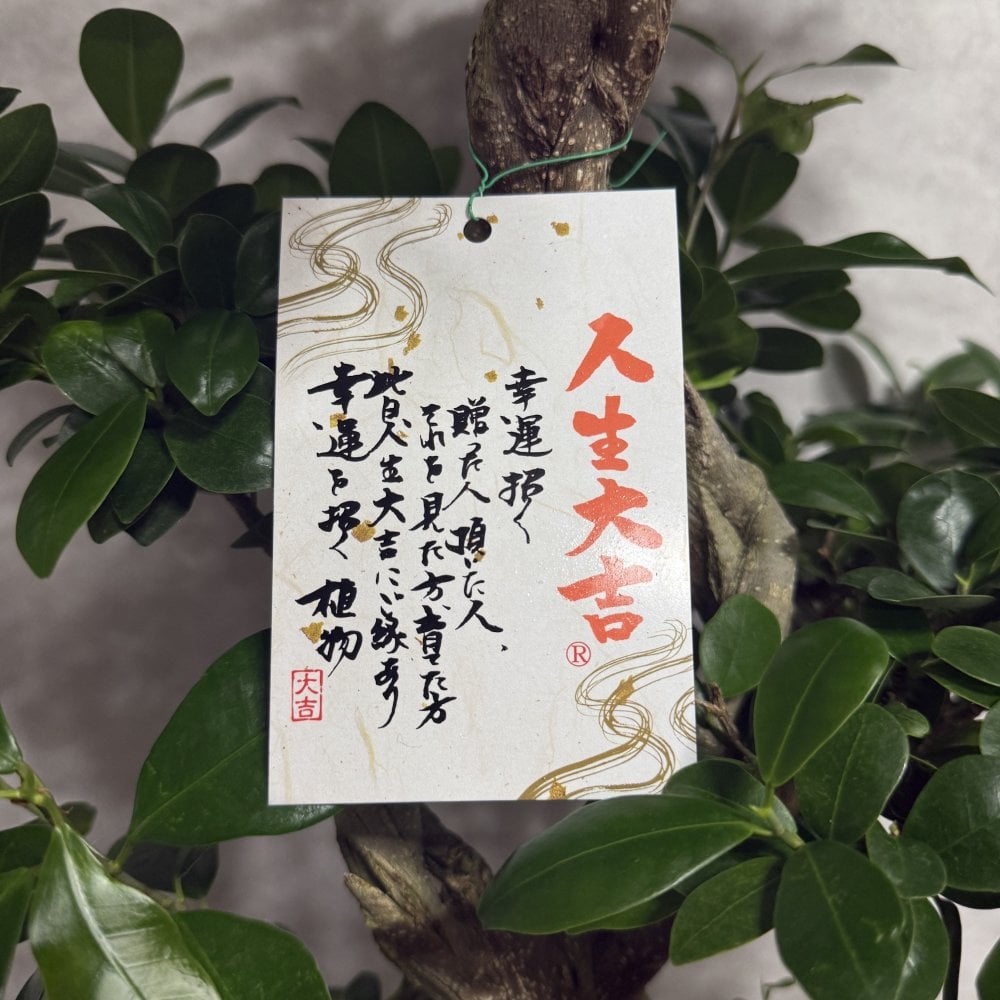 人生大吉
®
幸運招く
贈った人頂いた人、
それを見た方、育てた方
皆人生大吉にご縁あり
幸運を招く植物
大吉